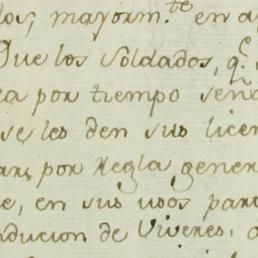 los, mayorm.te en a
Que los Soldados, q.e
ea por tiempo seña
se les den sus licen
ar, por Regla gener
e, en sus usos par
nducion de Viveres,